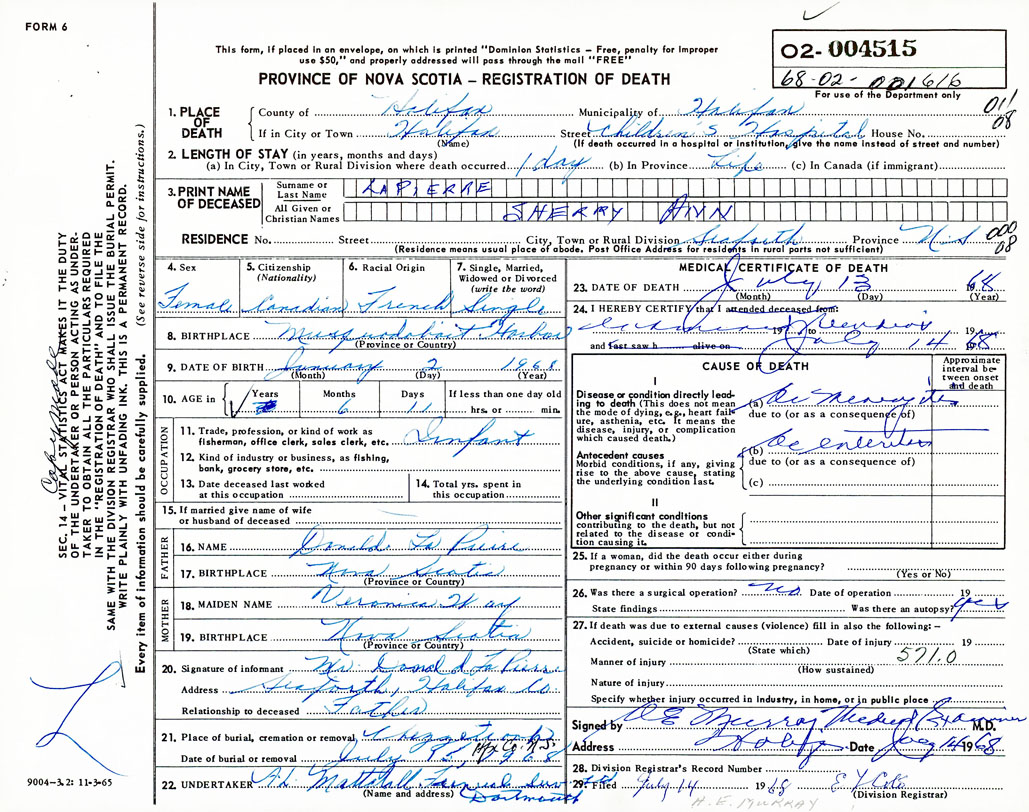 FORM 6
This form, if placed in an envelope, on which is printed "Dominion Statistics – Free, penalty for improper
use $50," and properly addressed will pass through the mail "FREE"
PROVINCE OF NOVA SCOTIA – REGISTRATION OF DEATH
O2- 004515
68-02- 001616
For use of the Department only
011
08
1. PLACE OF DEATH
County of Halifax Municipality of Halifax
If in City or Town Halifax Street Children's Hospital House No.
(Name) (If death occurred in a hospital or institution, give the name instead of street and number)
2. LENGTH OF STAY (in years, months and days)
(a) In City, Town or Rural Division where death occurred 1 day (b) In Province Life (c) In Canada (if immigrant)
3. PRINT NAME OF DECEASED
Surname or Last Name LAPIERRE
All Given or Christian Names SHERRY ANN
RESIDENCE No. Street City, Town or Rural Division Seaforth Province N.S
(Residence means usual place of abode. Post Office Address for residents in rural parts not sufficient)
000
08
4. Sex Female
5. Citizenship (Nationality) Canadian
6. Racial Origin French
7. Single, Married, Widowed or Divorced (write the word) Single
8. BIRTHPLACE Musquodoboit Harbour
(Province or Country)
9. DATE OF BIRTH January 2 1968
(Month) (Day) (Year)
10. AGE in Years Months 6 Days 11 If less than one day old hrs. or min.
OCCUPATION
11. Trade, profession or kind of work as fisherman, office clerk, sales clerk, etc. Infant
12. Kind of industry or business, as fishing, bank, grocery store, etc.
13. Date deceased last worked at this occupation
14. Total yrs. spent in this occupation
15. If married give name of wife or husband of deceased
FATHER
16. NAME Donald La Pierre
17. BIRTHPLACE Nova Scotia
(Province or Country)
MOTHER
18. MAIDEN NAME Veronica Way
19. BIRTHPLACE Nova Scotia
(Province or Country)
20. Signature of informant Mr. Donald La Pierre
Address Seaforth, Halifax Co.
Relationship to deceased Father
21. Place of burial, cremation or removal Chezzetcook Hfx Co. N.S.
Date of burial or removal July 15, 1968
22. UNDERTAKER Mattatall Funeral
(Name and address) Dartmouth
MEDICAL CERTIFICATE OF DEATH
23. DATE OF DEATH July 13 68
(Month) (Day) (Year)
24. I HEREBY CERTIFY that I attended deceased from:
19 to 19
and last saw h alive on July 14 1968
CAUSE OF DEATH
Approximate interval between onset and death
I
Disease or condition directly leading to death (This does not mean the mode of dying, e.g., heart failure, asthenia, etc. It means the disease, injury, or complication which caused death.)
(a)
due to (or as a consequence of)
Antecedent causes
Morbid conditions, if any, giving rise to the above cause, stating the underlying condition last.
(b) enteritis
due to (or as a consequence of)
(c)
II
Other significant conditions contributing to the death, but not related to the disease or condition causing it.
25. If a woman, did the death occur either during pregnancy or within 90 days following pregnancy?
(Yes or No)
26. Was there a surgical operation? No Date of operation 19
State findings Was there an autopsy? yes
27. If death was due to external causes (violence) fill in also the following:–
Accident, suicide or homicide? Date of injury 19
(State which) 571.0
Manner of injury
(How sustained)
Nature of injury
Specify whether injury occurred in industry, in home, or in public place
Signed by Murray Medical Examiner M.D.
Address Halifax Date 14 1968
28. Division Registrar's Record Number
29. Filed July 14 1968
(Division Registrar)
H. E. MURRAY
SEC. 14 – VITAL STATISTICS ACT MAKES IT THE DUTY
OF THE UNDERTAKER OR PERSON ACTING AS UNDER-
TAKER TO OBTAIN ALL THE PARTICULARS REQUIRED
IN THE "REGISTRATION OF DEATH" AND TO FILE THE
SAME WITH THE DIVISION REGISTRAR WHO SHALL ISSUE THE BURIAL PERMIT.
WRITE PLAINLY WITH UNFADING INK. THIS IS A PERMANENT RECORD.
Every item of information should be carefully supplied. (See reverse side for instructions.)
9004-3.2: 11-3-65